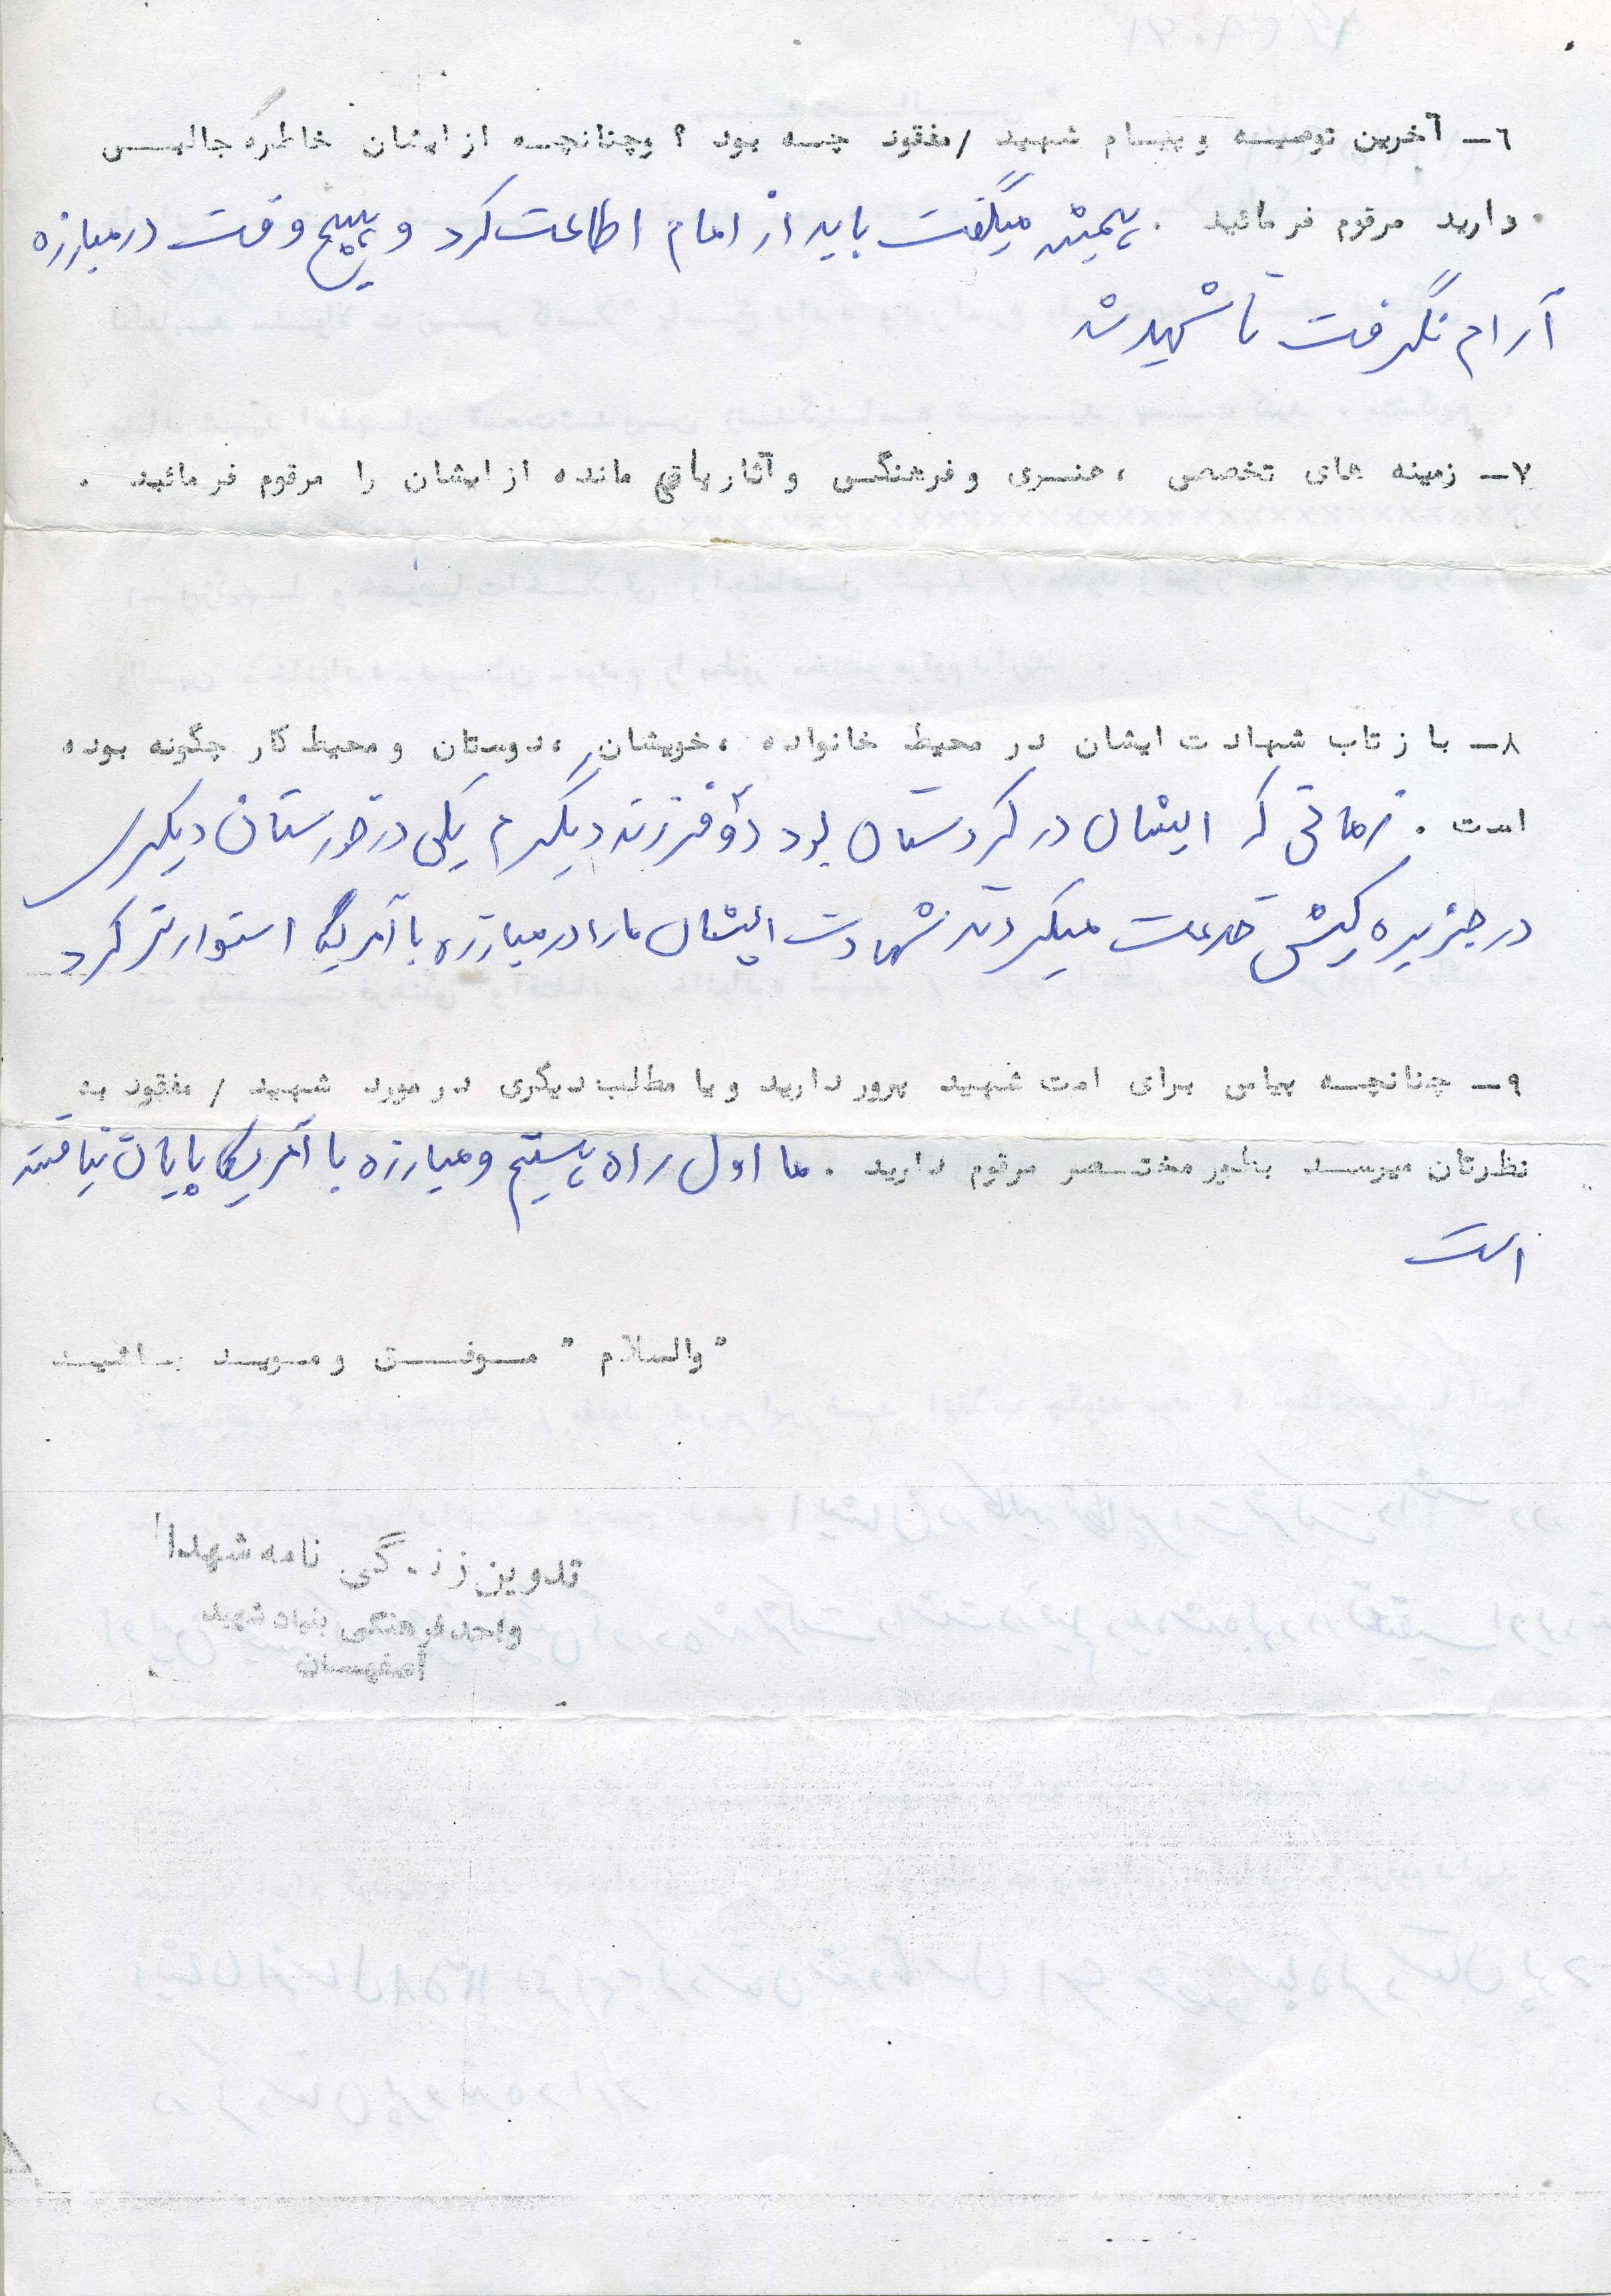 ۶ــ آخرین توصیـه و پیـام شهید /مفقود چـه بود ؟ وچنانچـه از ایشان خاطره جالبـی
دارید مرقوم فرمائید . همیشه میگفت باید از امام اطاعت کرد و هیچ وقت در مبارزه
آرام نگرفت تا شهید شد
۷ــ زمینه های تخصصی ، هنـری و فرهنگـی و آثار باقی مانده از ایشان را مرقوم فرمائید .
۸ــ بازتاب شهادت ایشان در محیط خانواده ،خویشان ،دوستان و محیط کار چگونه بوده
است . زمانی که ایشان در کردستان بود دو فرزند دیگرم یکی در خوزستان دیگری
در جزیره کیش خدمت میکردند شهادت ایشان ما را در مبارزه با آمریکا استوارتر کرد
۹ــ چنانچـه پیامی برای امت شهید پرور دارید و یا مطالب دیگری در مورد شهید / مفقود به
نظرتان میرسـد بطور مختـصر مرقوم دارید . ما اول راه هستیم و مبارزه با آمریکا پایان نیافته
است
"والسلام" مـوفـــق و مـویـد بـاشیـد
تدوین زندگی نامه شهدا
واحد فرهنگی بنیاد شهید
اصفهـان